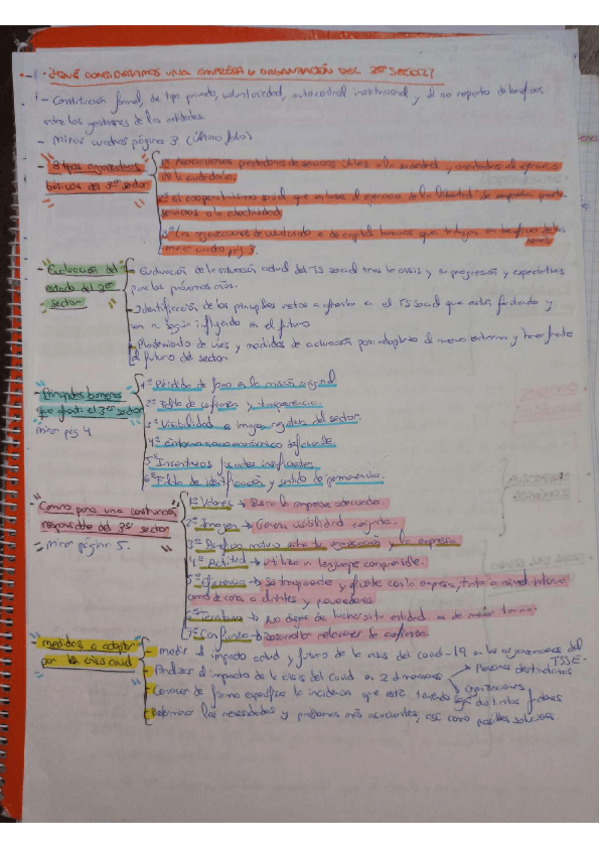 ¿QUÉ CONSIDERAMOS UNA EMPRESA U ORGANIZACIÓN DEL 3er SECTOR?
- Constitución formal, de tipo privado, voluntariedad, autocontrol institucional y el no reparto de beneficios
entre los gestores de las entidades.
- Mirar cuadros página 3 (último folio)
- 3 tipos organizativos básicos del 3er sector
1º Asociaciones prestadoras de servicios útiles a la sociedad, y el ejercicio
de la ciudadanía.
2º El cooperativismo social que el ejercicio de la libertad de empresa
servicios a la colectividad
3º Las organizaciones de voluntariado o de capital humano que trabajan en beneficio de los demás
mirar cuadro pág 3.
- Evaluación del estado del 3er sector
- Evaluación de la situación actual del TS social tras la crisis y su progresión y expectativas
para los próximos años.
- Identificación de los principales retos a afrontar en el TS social que están afectando y
van a seguir influyendo en el futuro
- Planteamiento de vías y medidas de actuación para adaptarlas al nuevo entorno y hacer frente
al futuro del sector
- Principales barreras que afronta el 3er sector
mirar pág 4
1º Pérdida de foco en la misión original
2º Falta de confianza y transparencia.
3º Visibilidad e imagen regular del sector.
4º entorno socioeconómico
5º Incentivos fiscales ineficientes
6º Falta de identificación y sentido de permanencia.
- Cómo para una contratación responsable del 3er sector
- mirar página 5.
1º Valores → la empresa adecuada.
2º Imagen → Genera visibilidad conjunta.
3º Beneficio mutuo entre la organización y la empresa
4º Actitud → Utiliza un lenguaje comprensible.
5º Eficiencia → Se transparente y eficiente con la empresa, tanto a nivel interno
como de cara a clientes y proveedores
6º Territorio → No dejes de luchar si tu entidad es de menor tamaño
7º Confianza → Desarrollar relaciones de confianza.
- Medidas a adoptar por la crisis covid
- Medir el impacto actual y futuro de la crisis del covid-19 en las organizaciones del TSSE.
- Analizar el impacto de la crisis del covid en 2 dimensiones
Personas destinatarias
organizaciones
- Conocer de forma específica la incidencia que está teniendo según distintos factores
- Determinar las necesidades y problemas más acuciantes, así como posibles soluciones